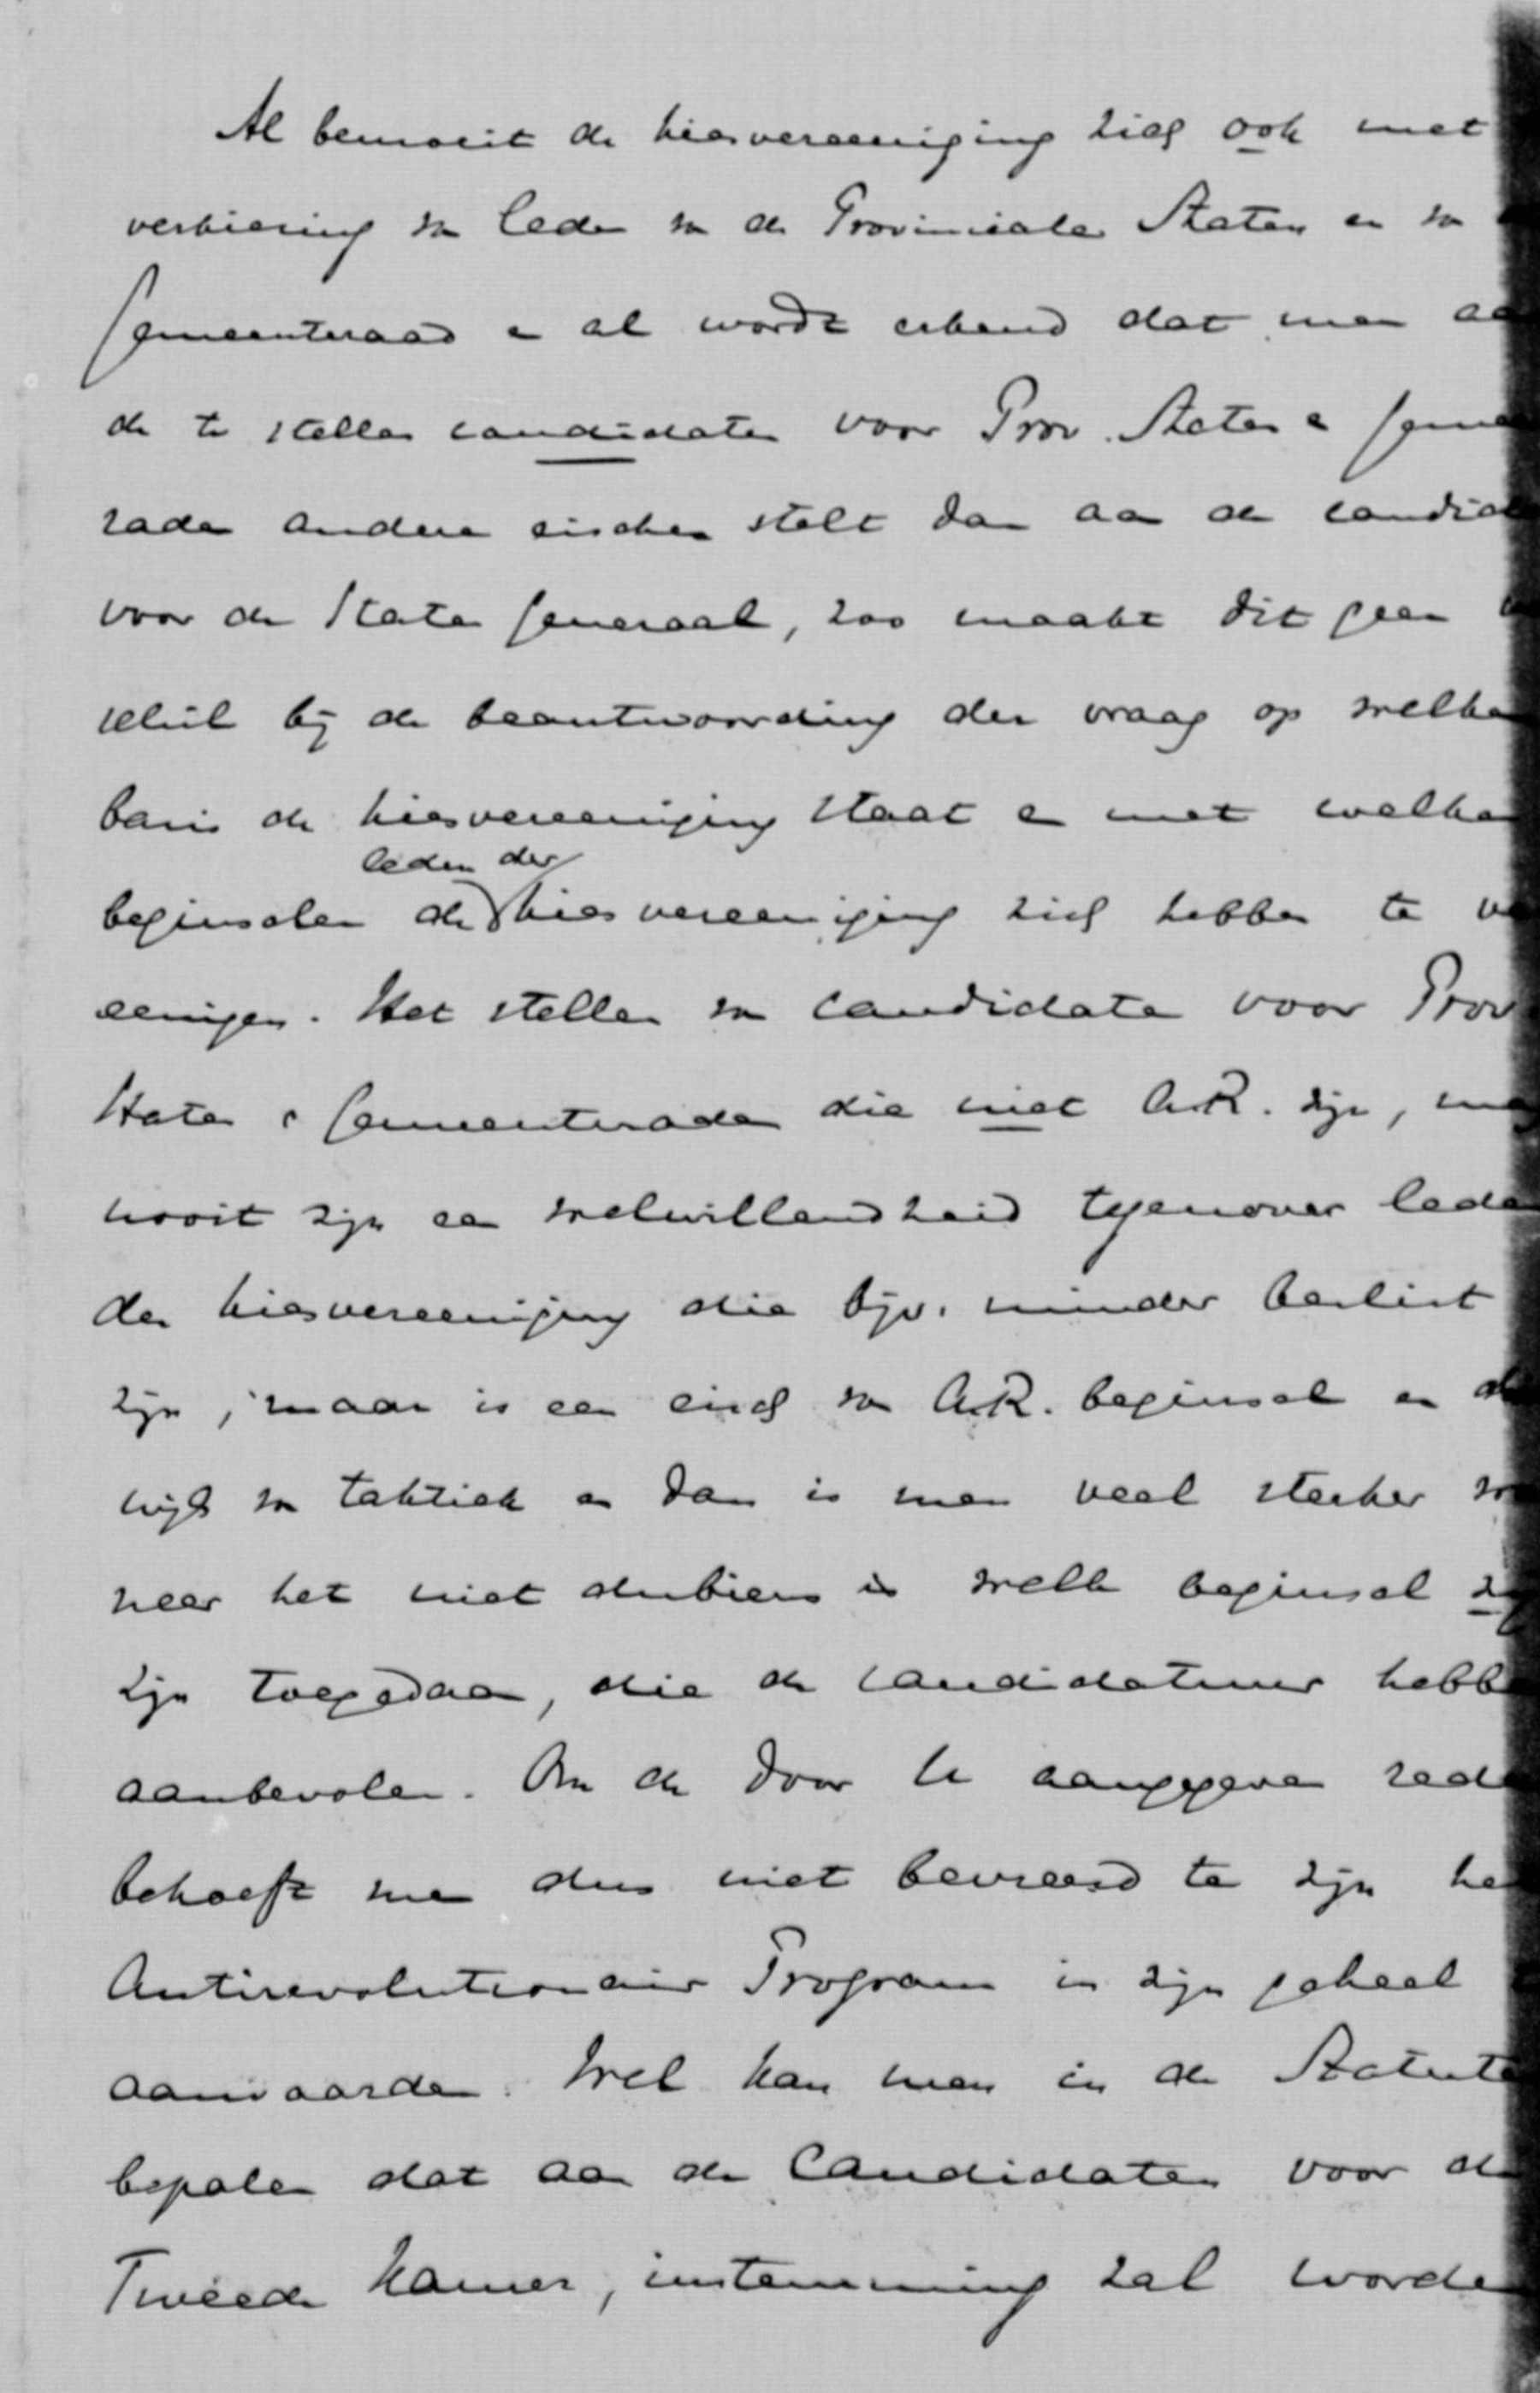 Al bemoeit de kiesvereeniging zich ook met
verkiezing van leden van de Provinciale Staten en van
Gemeenteraad en al wordt erkend dat men aa
de te stellen candidaten voor Prov. Staten en Geme
raden andere eischen stelt dan aan de candid
voor de Staten Generaal, zoo maakt dit geen
schil bij de beantwoording der vraag op welke
basis de kiesvereeniging staat en met welke
beginselen de leden der kiesvereeniging zich hebben te ve
eenigen. Het stellen van candidaten voor Prov
Staten en Gemeenteraden die niet A.R. zijn, m
nooit zijn een welwillendheid tegenover leden
der kiesvereeniging die bijv. minder beslist
zijn, maar is een eisch van A.R. beginsel en de
wijls van taktiek en dan is men veel sterker w
neer het niet dubieus is welk beginsel zij
zijn toegedaan, die de candidatuur hebben
aanbevolen. Om de door U aangegeven rede
behoeft men dus niet bevreesd te zijn he
Antirevolutionair Program in zijn geheel
aanvaarden. Wel kan men in de Statute
bepalen dat aan de Candidaten voor de
Tweede Kamer, instemming zal worden